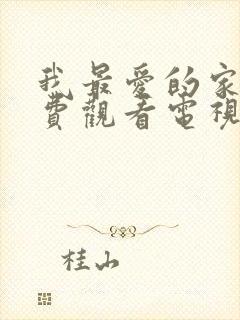 我最爱的家
費觀看電視
桂山